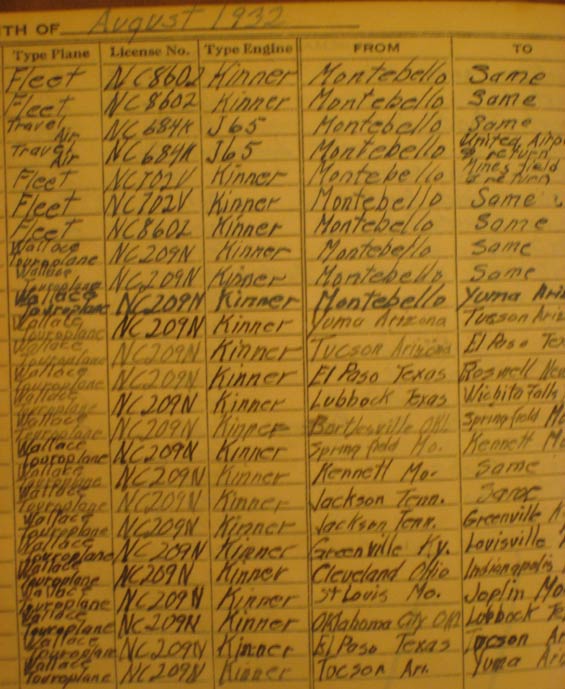 TH OF August 1932
Type Plane License No. Type Engine FROM TO
Fleet NC8602 Kinner Montebello Same
Fleet NC8602 Kinner Montebello Same
Travel Air NC684K J65 Montebello Same
Travel Air NC684K J65 Montebello United Airp & return
Fleet NC702V Kinner Montebello Mines Field & return
Fleet NC702V Kinner Montebello Same
Fleet NC8602 Kinner Montebello Same
Wallace Touroplane NC209N Kinner Montebello Same
Wallace Touroplane NC209N Kinner Montebello Same
Wallace Touroplane NC209N Kinner Montebello Yuma Ariz
Wallace Touroplane NC209N Kinner Yuma Arizona Tucson Ariz
Wallace Touroplane NC209N Kinner Tucson Arizona El Paso Tex
Wallace Touroplane NC209N Kinner El Paso Texas Roswell New
Wallace Touroplane NC209N Kinner Lubbock Texas Wichita Falls
Wallace Touroplane NC209N Kinner Bartlesville Okl. Springfield Mo
Wallace Touroplane NC209N Kinner Springfield Mo. Kennett Mo
Wallace Touroplane NC209N Kinner Kennett Mo. Same
Wallace Touroplane NC209N Kinner Jackson Tenn. Same
Wallace Touroplane NC209N Kinner Jackson Tenn. Greenville
Wallace Touroplane NC209N Kinner Greenville Ky. Louisville
Wallace Touroplane NC209N Kinner Cleveland Ohio Indianapolis
Wallace Touroplane NC209N Kinner St Louis Mo. Joplin Mo
Wallace Touroplane NC209N Kinner Oklahoma City Okl Lubbock Te
Wallace Touroplane NC209N Kinner El Paso Texas Tucson Ar
Wallace Touroplane NC209N Kinner Tucson Ari. Yuma Ar